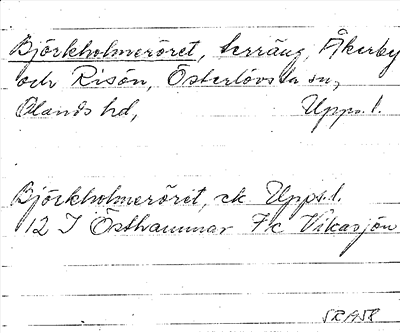 Björkholmeröret, terräng, Åkerby
och Risön, Österlövsta sn,
Olands hd, Upps. l.
Björkholmeröret, ek Upps. l.
12 I Östhammar F c Vikasjön
SR 1958